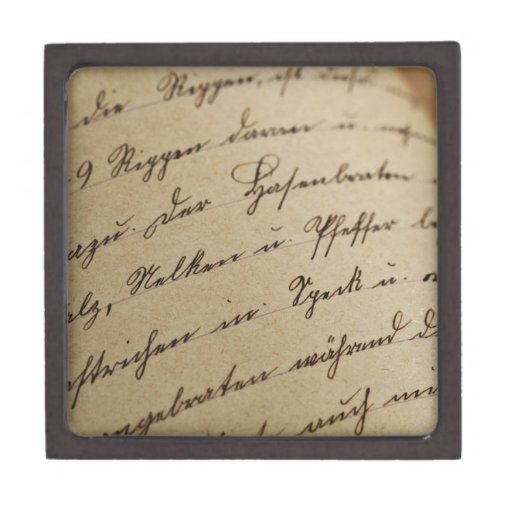 die Rippen, ist
9 Rippen daran u.
azu. Der Hasenbraten
alz, Nelken u. Pfeffer be
estrichen in Speck u.
angebraten während d
auch mi